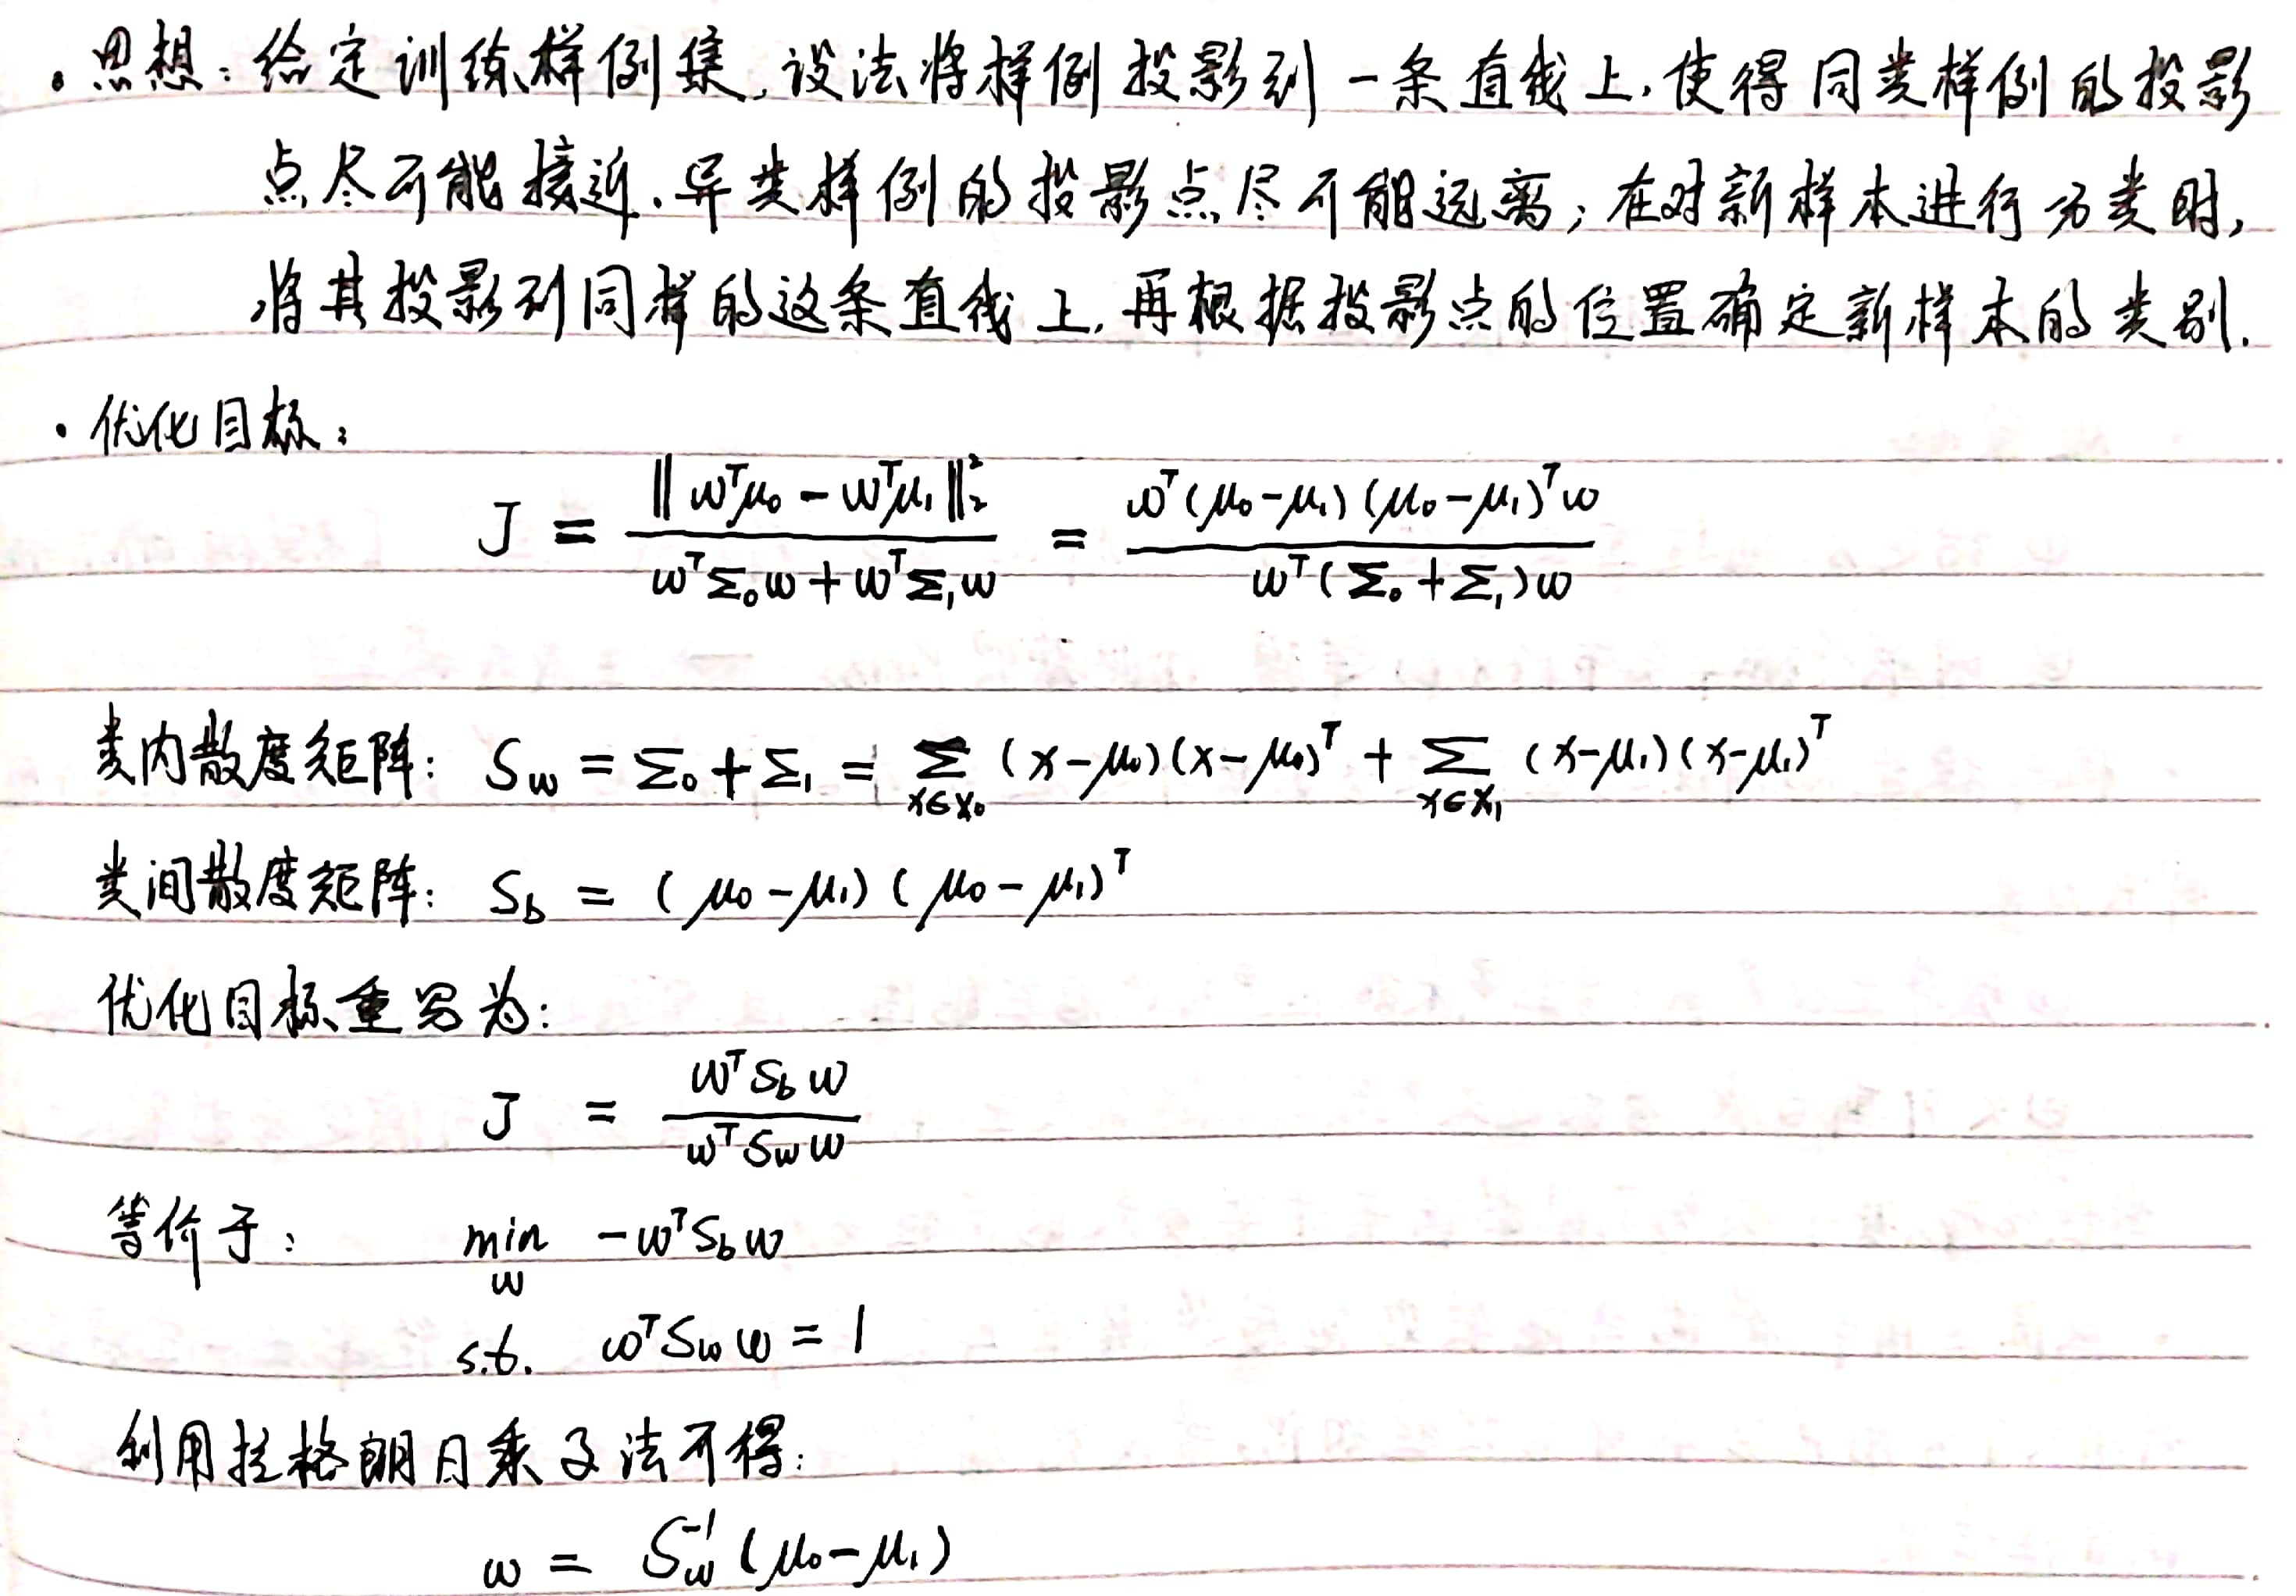 · 思想：给定训练样例集,设法将样例投影到一条直线上,使得同类样例的投影
点尽可能接近、异类样例的投影点尽可能远离；在对新样本进行分类时,
将其投影到同样的这条直线上,再根据投影点的位置确定新样本的类别.
· 优化目标：
J = \frac{\| w^T μ_0 - w^T μ_1 \|_2^2}{w^T Σ_0 w + w^T Σ_1 w} = \frac{w^T (μ_0 - μ_1)(μ_0 - μ_1)^T w}{w^T (Σ_0 + Σ_1) w}
类内散度矩阵： S_w = Σ_0 + Σ_1 = \sum_{x∈X_0} (x - μ_0)(x - μ_0)^T + \sum_{x∈X_1} (x - μ_1)(x - μ_1)^T
类间散度矩阵： S_b = (μ_0 - μ_1)(μ_0 - μ_1)^T
优化目标重写为：
J = \frac{w^T S_b w}{w^T S_w w}
等价于： min_w -w^T S_b w
s.t. w^T S_w w = 1
利用拉格朗日乘子法可得：
w = S_w^{-1} (μ_0 - μ_1)